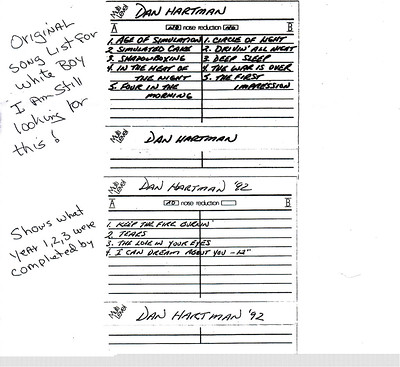 ORIGINAL
SONG LIST FOR
WHITE BOY
I AM STILL
looking for
this !
DAN HARTMAN
A noise reduction B
1. AGE OF SIMULATION
2 SIMULATED CAKE
3. SHADOWBOXING
4. IN THE HEAT OF
THE NIGHT
5. FOUR IN THE
MORNING
1. CIRCLE OF LIGHT
2. DRIVIN' ALL NIGHT
3 DEEP SLEEP
4. THE WAR IS OVER
5. THE FIRST
IMPRESSION
DAN HARTMAN
Shows what
year 1,2,3 were
completed by
DAN HARTMAN '92
A noise reduction B
1. KEEP THE FIRE BURNIN'
2 TEARS
3. THE LOVE IN YOUR EYES
4. I CAN DREAM ABOUT YOU - 12"
DAN HARTMAN '92